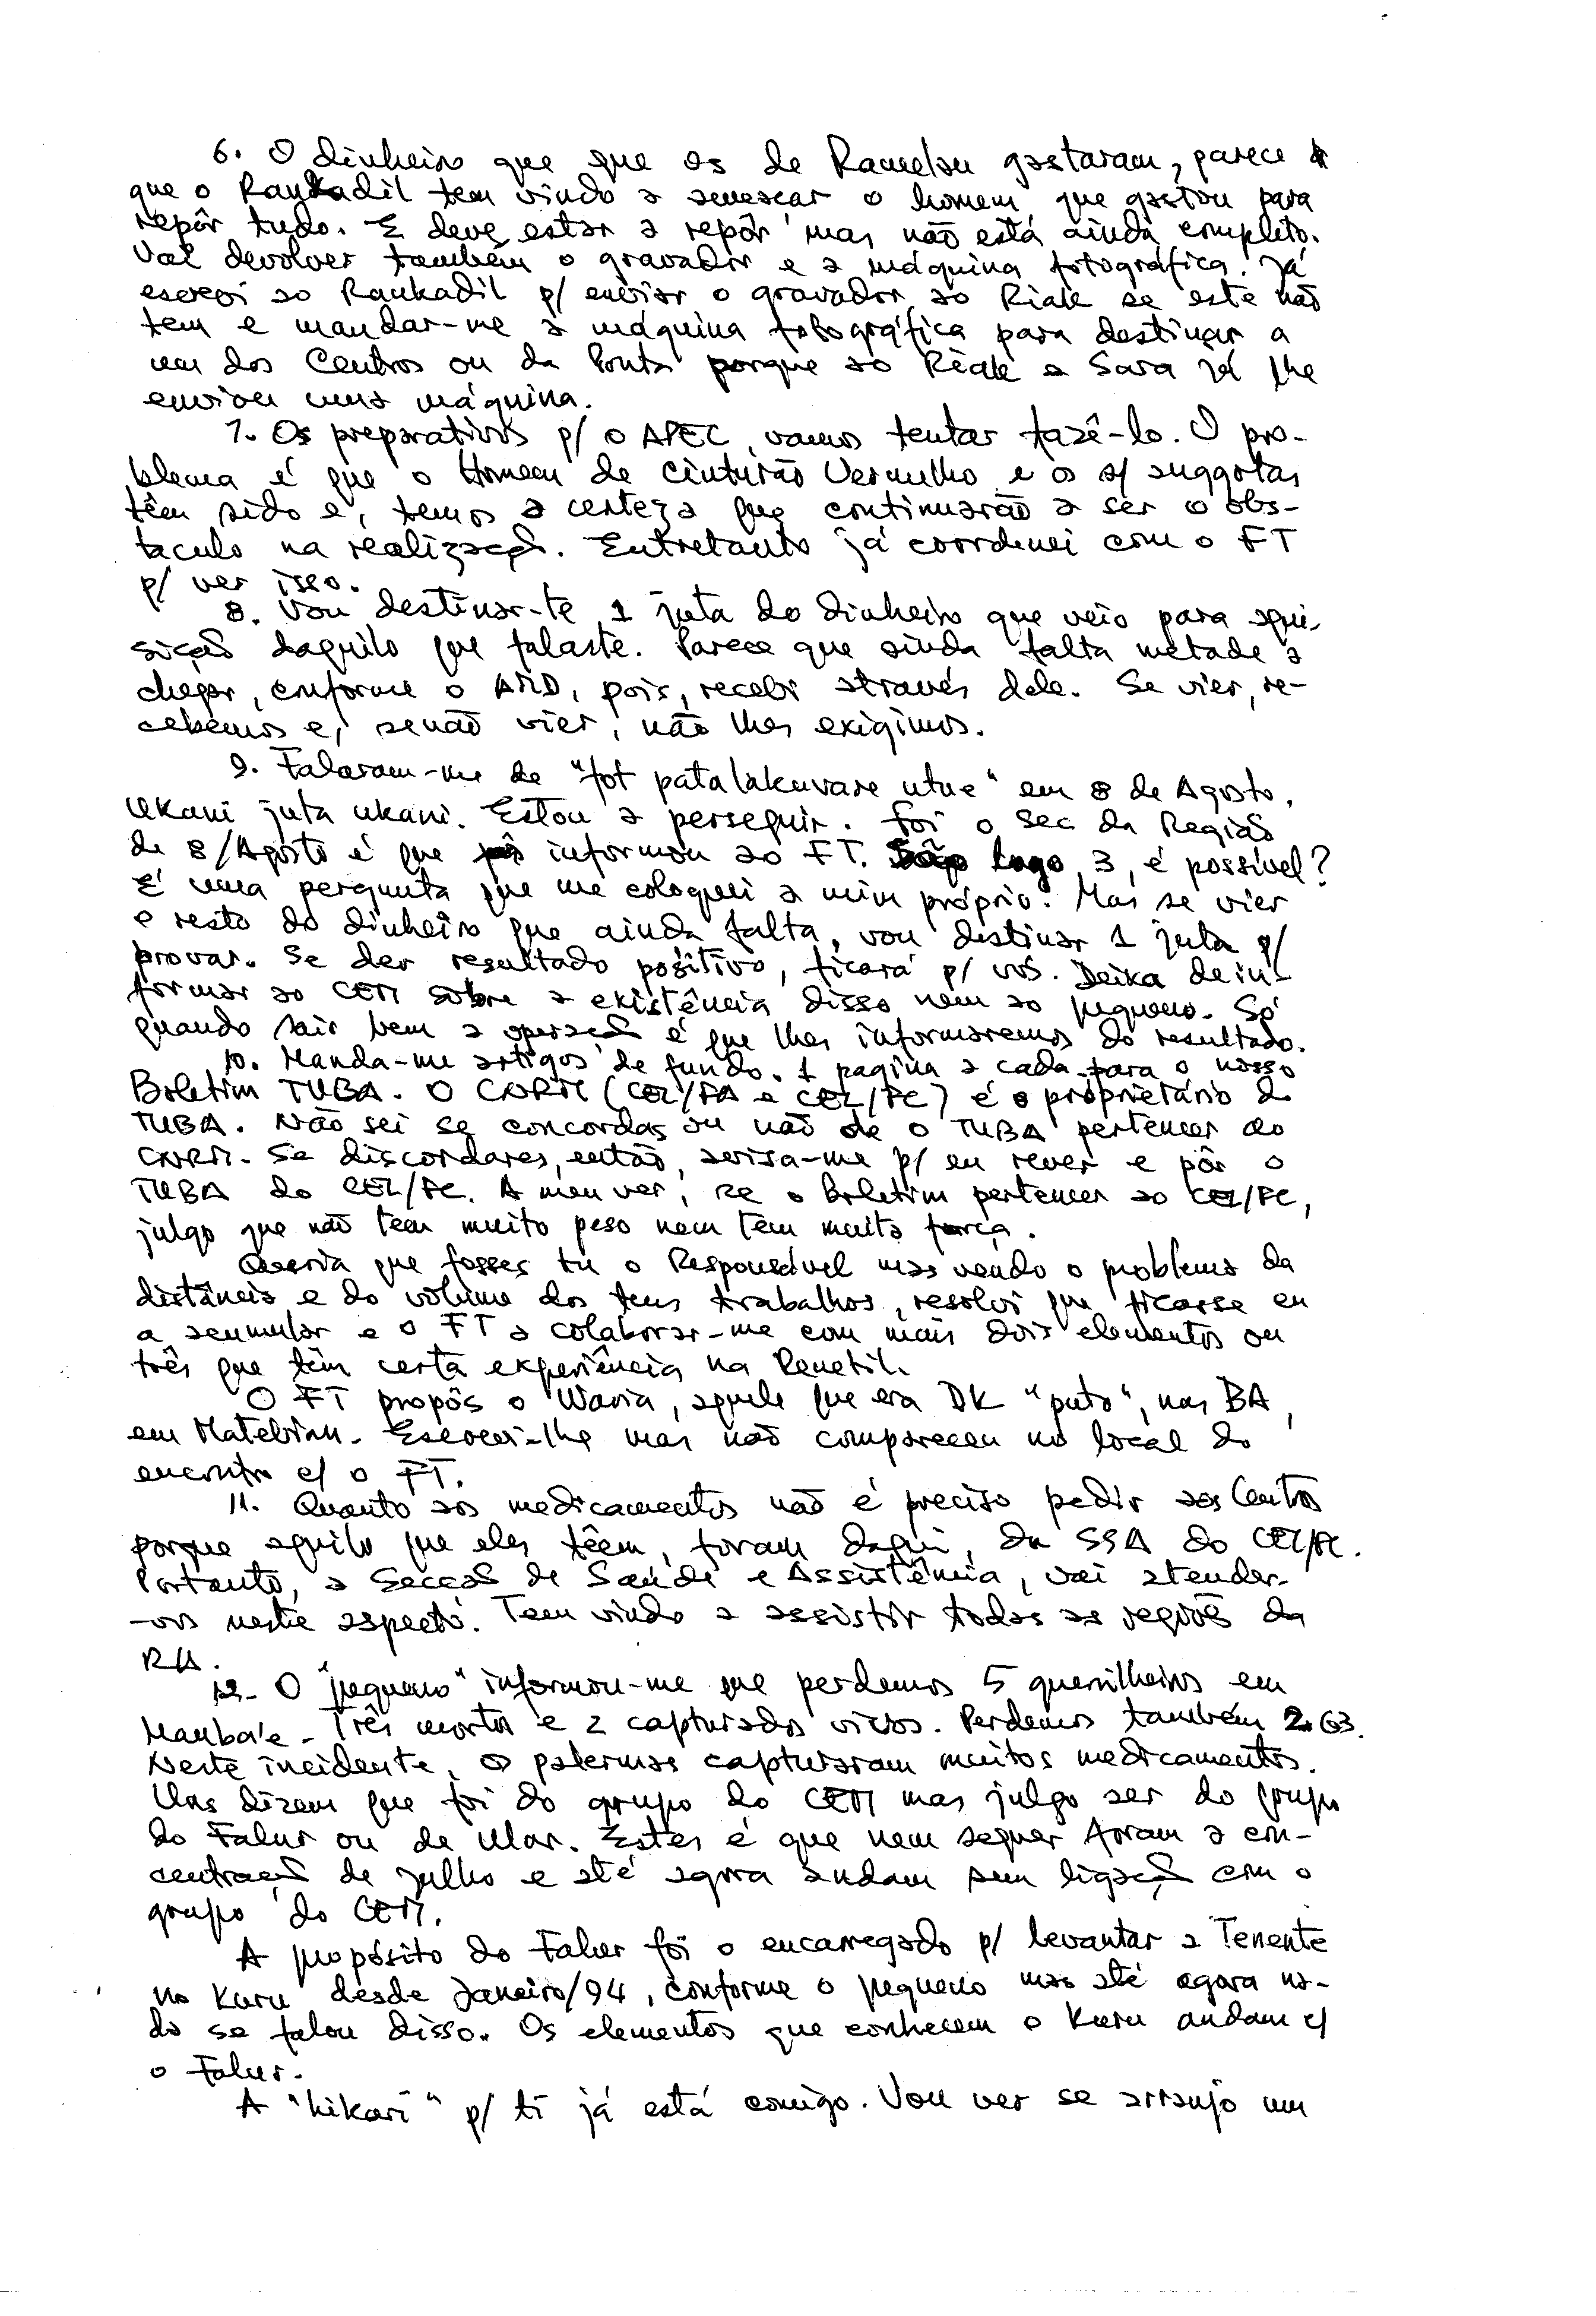 6. O dinheiro que que os de Ramelau gastaram, parece
que o Rankadil tem vindo a ameaçar o homem que gastou para
repôr tudo. E deve estar a repôr mas não está ainda completo.
Vai devolver também o gravador e a máquina fotográfica. Já
escrevi ao Rankadil p/ enviar o gravador ao Riak se este não
tem e mandar-me a máquina fotográfica para destinar a
um dos Centros ou da Ponta porque ao Riak a Sara já lhe
enviou uma máquina.
7. Os preparativos p/ o APEC, vamos tentar fazê-lo. O pro-
blema é que o Homem de Cinturão Vermelho e os s/
têm sido e, temos a certeza que continuarão a ser o obs-
taculo na realização. Entretanto já coordenei com o FT
p/ ver isso.
8. Vou destinar-te 1 juta do dinheiro que veio para aqui-
sição daquilo que falaste. Parece que ainda falta metade a
chegar, conforme o AMD, pois, recebi através dele. Se vier, re-
cebemos e, senão vier, não lhes exigimos.
9. Falaram-me de "fot patalakuvare utue" em 8 de Agosto.
Ukani juta ukani. Estou a perseguir. Foi o Sec da Região
de 8/Agosto é que informou ao FT. logo 3, é possível?
É uma pergunta que me coloquei a mim próprio. Mas se vier
o resto do dinheiro que ainda falta, vou destinar 1 juta p/
provar. Se der resultado positivo, ficará p/ vós. Deixa de in-
formar ao CEM sobre a existência disso nem ao pequeno. Só
quando sair bem a operação é que lhes informaremos do resultado.
10. Manda-me artigos de fundo. 1 pagina a cada para o nosso
Boletim TUBA. O CNRM (CEL/FA e CEL/FC) é o proprietário do
TUBA. Não sei se concordas ou não de o TUBA pertencer ao
CNRM. Se discordares, então, avisa-me p/ eu rever e pôr o
TUBA do CEL/FC. A meu ver, se o Boletim pertencer ao CEL/FC,
julgo que não tem muito peso nem tem muita força.
Queria que fosses tu o Responsável mas vendo o problema da
distância e do volume dos teus trabalhos, resolvi que ficasse eu
a acumular e o FT a colaborar-me com mais dois elementos ou
três que têm certa experiência na Renetil.
O FT propôs o Waria, aquele que era DK "puto", nas BA,
em Matebian. Escrevi-lhe mas não compareceu no local do
encontro c/ o FT.
11. Quanto aos medicamentos não é preciso pedir aos Centros
porque aquilo que eles têem, foram daqui, da SSA do CEL/FC.
Portanto, a Secção de Saúde e Assistência, vai atender-
-vos neste aspecto. Tem vindo a assistir todas as regiões da
RA.
12. O "pequeno" informou-me que perdemos 5 guerrilheiros em
Mauba'e - Três mortos e 2 capturados vivos. Perdemos também 2 G3.
Neste incidente, os palermas capturaram muitos medicamentos.
Uns dizem que foi do grupo do CEM mas julgo ser do grupo
do Falur ou de Ular. Estes é que nem sequer foram a con-
centração de Julho e até agora andam sem ligação com o
grupo do CEM.
A propósito do Falur foi o encarregado p/ levantar a Tenente
no Kuru desde Janeiro/94, conforme o pequeno mas até agora na-
da se falou disso. Os elementos que conhecem o Kuru andam c/
o Falur.
A "hikari" p/ ti já está comigo. Vou ver se arranjo um